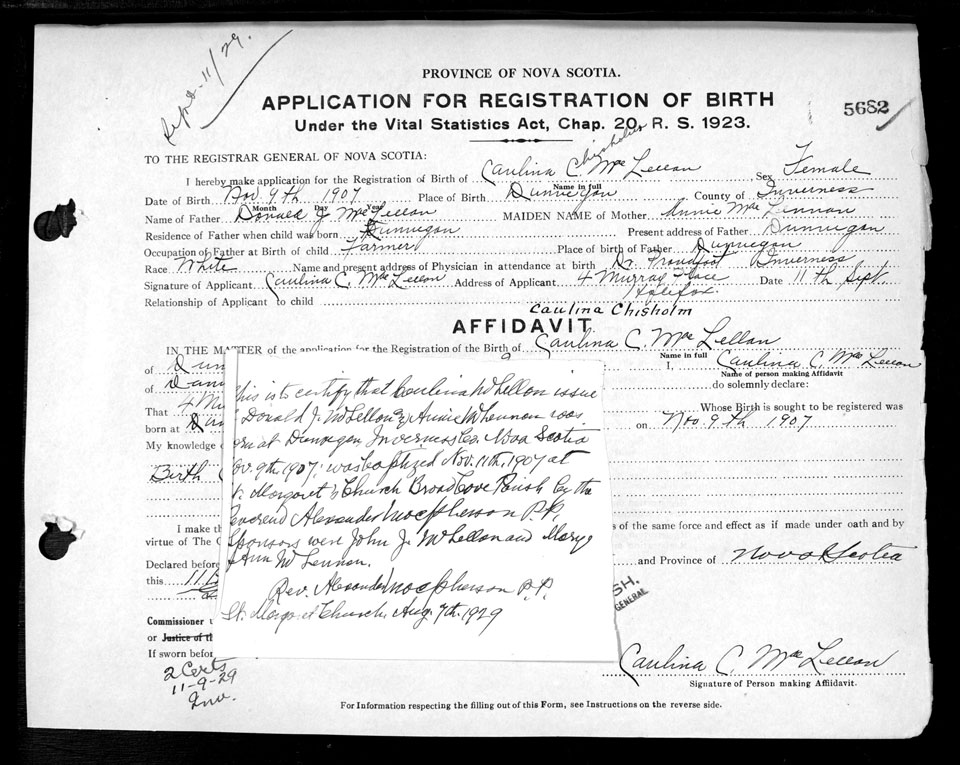 Sept. 11/29.
PROVINCE OF NOVA SCOTIA.
APPLICATION FOR REGISTRATION OF BIRTH
5682
Under the Vital Statistics Act, Chap. 20, R. S. 1923.
TO THE REGISTRAR GENERAL OF NOVA SCOTIA:
Chisholm
I hereby make application for the Registration of Birth of Caulina C. MacLellan Sex Female
Name in full
Date of Birth Nov 9th 1907 Place of Birth Dunvegan County of Inverness
Month Day Year
Name of Father Donald J MacLellan MAIDEN NAME of Mother Annie MacLennan
Residence of Father when child was born Dunvegan Present address of Father Dunvegan
Occupation of Father at Birth of child Farmer Place of birth of Father Dunvegan
Race White Name and present address of Physician in attendance at birth Dr. Proudfoot Inverness
Signature of Applicant Caulina C. MacLellan Address of Applicant 4 Murray Place Date 11th Sept.
Halifax.
Relationship of Applicant to child
Caulina Chisholm
AFFIDAVIT
IN THE MATTER of the application for the Registration of the Birth of Caulina C. MacLellan
Name in full
of Dun I, Caulina C. MacLellan
Name of person making Affidavit
of Dun do solemnly declare:
That 4 Mu Whose Birth is sought to be registered was
born at Dun on Nov. 9th 1907
My knowledge
Birth C
This is to certify that Caulina McLellan issue
Donald J. McLellan & Annie McLennan was
orn at Dunvegan, Inverness Co. Nova Scotia
ov. 9th. 1907: was baptized Nov. 11th, 1907 at
t. Margaret's Church Broad Cove Parish by the
Reverend Alexander Macpherson P.P.
Sponsors were John J. McLellan and Mary
Ann McLennon.
Rev. Alexander Macpherson P.P.
St. Margaret Church, Aug. 7th. 1929
I make th s of the same force and effect as if made under oath and by
virtue of The C
Declared before and Province of Nova Scotia
this 11
SH.
GENERAL
Commissioner
or Justice of t
If sworn before
2 Certs
11-9-29
Inv.
Caulina C. MacLellan
Signature of Person making Affidavit.
For Information respecting the filling out of this Form, see Instructions on the reverse side.